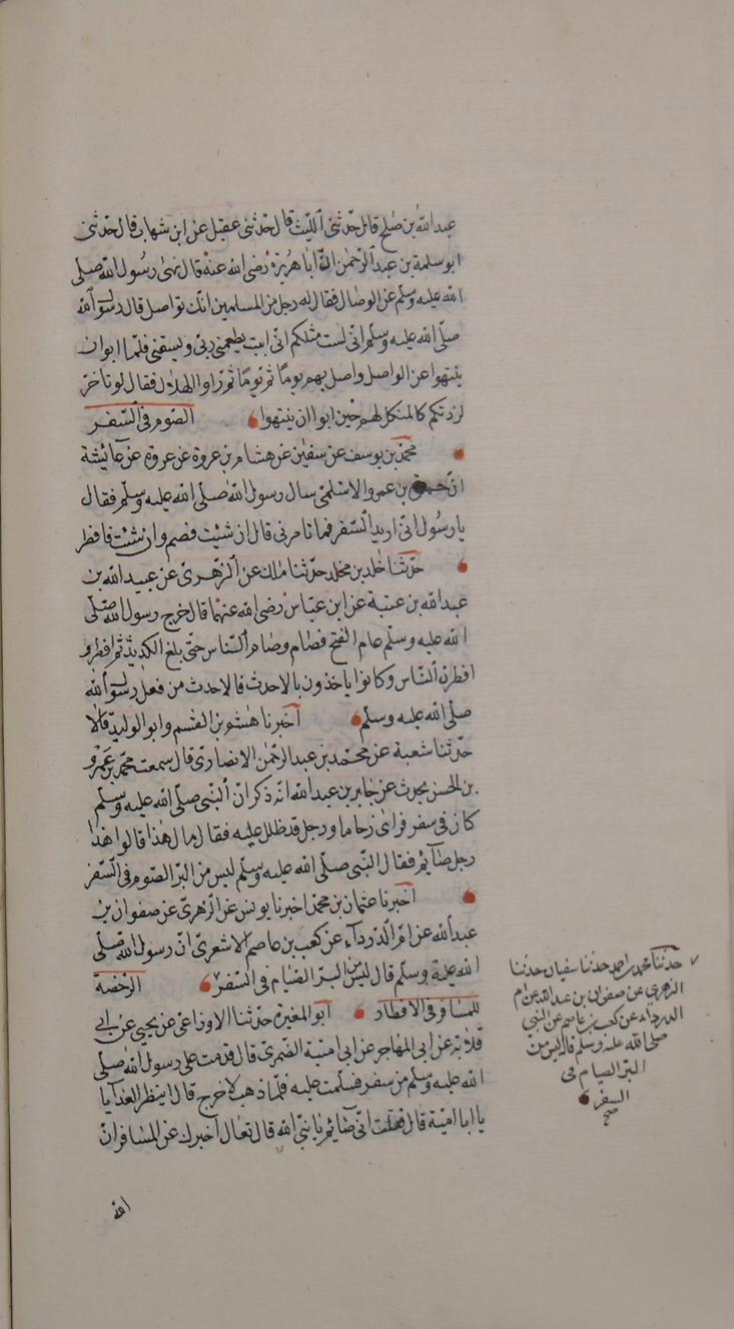 عبد الله بن صلح قال حدثنى الليث قال حدثنى عقيل عن ابن شهاب قال حدثنى
ابو سلمة بن عبد الرحمن ان ابا هريرة رضى الله عنه قال نهى رسول الله صلى
الله عليه وسلم عن الوصال فقال له رجل من المسلمين انك تواصل قال رسول الله
صلى الله عليه وسلم انى لست مثلكم انى ابيت يطعمنى ربى ويسقنى فلما ابوا ان
ينتهوا عن الواصل واصل بهم يوما ثم يوما ثم راوا الهلال فقال لو تاخر
لزدتكم كالمنكل لهم حين ابوا ان ينتهوا الصوم فى السفر
محمد بن يوسف عن سفين عن هشام بن عروة عن عروة عن عآئيشة
ان حمزة بن عمرو الاسلمى سال رسول الله صلى الله عليه وسلم فقال
يا رسول انى اريد السفر فما تامرنى قال ان شيئت فصم وان شئت فافطر
حدثنا خلد بن مخلد حدثنا ملك عن الزهرى عن عبيد الله بن
عبد الله بن عتبة عن ابن عباس رضى الله عنهما قال خرج رسول الله صلى
الله عليه وسلم عام الفتح فصام وصام الناس حتى بلغ الكديد ثم افطر و
افطره الناس وكانوا ياخذون بالاحدث فالاحدث من فعل رسول الله
صلى الله عليه وسلم اخبرنا هشو بن القسم وابو الوليد قالا
حدثنا شعبة عن محمد بن عبد الرحمن الانصارى قال سمعت محمد بن عمرو
بن الحسن يحدث عن جابر بن عبد الله انه ذكر ان النبى صلى الله عليه وسلم
كان فى سفر فراى زحاما ورجل قد ظلل عليه فقال مال هذا قالوا هذا
رجل صآيم فقال النبى صلى الله عليه وسلم ليس من البر الصوم فى السفر
اخبرنا عثمان بن محمد اخبرنا يونس عن الزهرى عن صفوان بن
عبد الله عن ام الدردآء عن كعب بن عاصم الاشعرى ان رسول الله صلى
الله علية وسلم قال ليس من البر الصيام فى السفر الرخصة
للمسافر فى الافطار ابو المغيرة حدثنا الاوزاعى عن يحيى عن ابى
قلابة عن ابى المهاجر عن ابى امية الضمرى قال قدمت على رسول الله صلى
الله عليه وسلم من سفر فسلمت عليه فلما ذهب لاخرج قال اينظر الغدآ يا
يا ابا امية قال فقلت انى صآئم يا نبى الله قال تعال اخبرك عن المسافر ان
الله
حدثنا محمد بن احمد حدثنا سفيان حدثنا
الزهري عن صفوان بن عبد الله عن ام
الدرداء عن كعب بن عاصم عن النبي
صلى الله عليه وسلم قال ليس من
البر الصيام في
السفر
صح